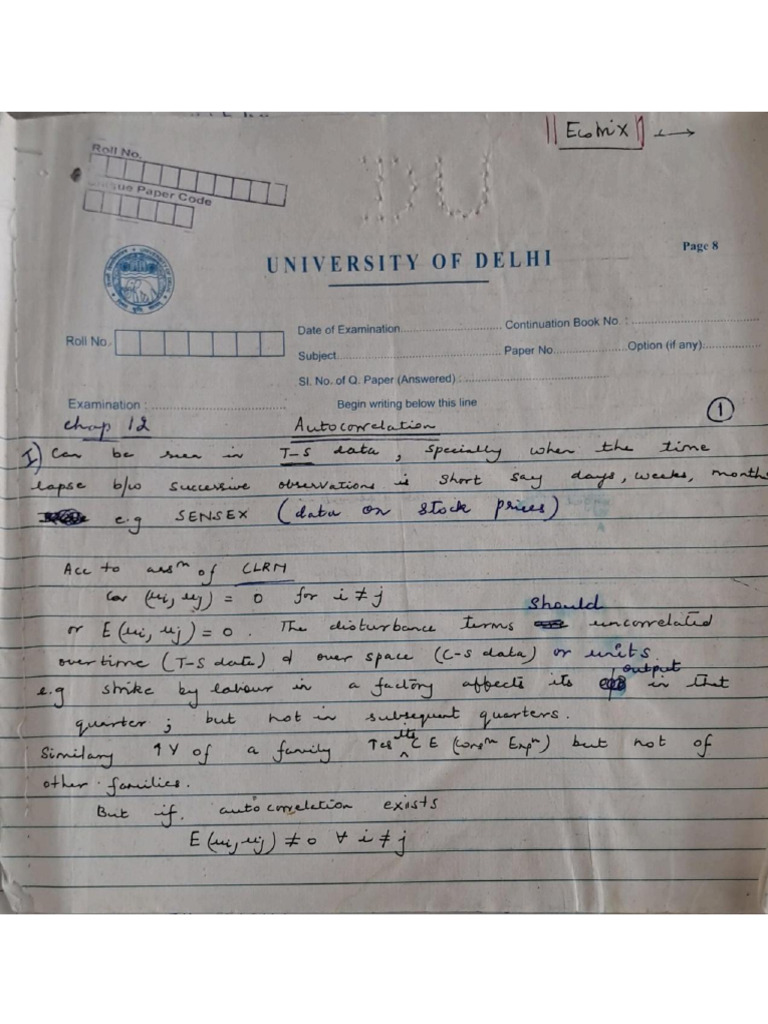 || Ecotrix || →
Roll No.
Unique Paper Code
DU
Page 8
UNIVERSITY OF DELHI
Date of Examination.............................. Continuation Book No. : ..............................
Roll No.
Subject.................................................. Paper No.....................Option (if any):.................
Sl. No. of Q. Paper (Answered) : ..............................
Examination : ..............................
Begin writing below this line
①
Chap 12 Autocorrelation
I) Can be seen in T-S data, specially when the time
lapse b/w successive observations is short say days, weeks, months
e.g SENSEX (data on stock prices)
Acc to assⁿ of CLRM
Cov (ui, uj) = 0 for i ≠ j
or E(ui, uj) = 0. The disturbance terms should uncorrelated
overtime (T-S data) & over space (C-S data) or units
e.g strike by labour in a factory affects its output in that
quarter; but not in subsequent quarters.
Similary ↑Y of a family ↑es its CE (Consⁿ Expⁿ) but not of
other families.
But if, autocorrelation exists
E(ui, uj) ≠ 0 ∀ i ≠ j